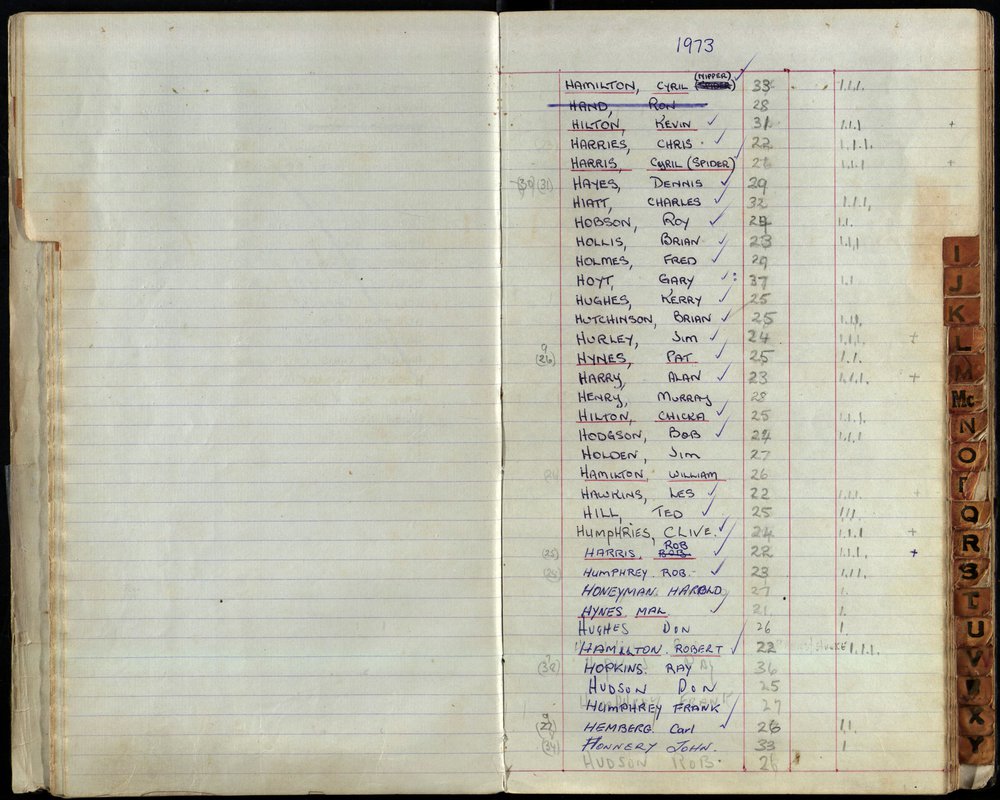 1973
HAMILTON, CYRIL (NIPPER) 33 1.1.1.
HAND, RON 28
HILTON, KEVIN ✓ 31 1.1.1 +
HARRIES, CHRIS. ✓ 22 1.1.1.
HARRIS, CYRIL (SPIDER) 26 1.1.1 +
(30) (31) HAYES, DENNIS ✓ 29
HIATT, CHARLES ✓ 32 1.1.1.
HOBSON, ROY ✓ 24 1.1.
HOLLIS, BRIAN ✓ 23 1.1.1
HOLMES, FRED ✓ 29
HOYT, GARY ✓: 37 1.1
HUGHES, KERRY ✓ 25
HUTCHINSON, BRIAN ✓ 25 1.1.1.
HURLEY, JIM ✓ 24 1.1.1. +
9 (26) HYNES, PAT ✓ 25 1.1.
HARRY, ALAN ✓ 23 1.1.1. +
HENRY, MURRAY 28
HILTON, CHICKA ✓ 25 1.1.1.
HODGSON, BOB ✓ 24 1.1.1
HOLDEN, JIM 27
HAMILTON, WILLIAM 26
HAWKINS, LES ✓ 22 1.1.1. +
HILL, TED ✓ 25 111
HUMPHRIES, CLIVE. ✓ 24 1.1.1 +
(25) HARRIS. BOB ROB ✓ 22 1.1.1. +
HUMPHREY. ROB. ✓ 23 1.1.1.
HONEYMAN. HAROLD 27 1.
HYNES MAL ✓ 21. 1.
HUGHES DON 26 1.
HAMILTON. ROBERT ✓ 22 1.1.1.
HOPKINS. RAY 36
HUDSON DON 25
HUMPHREY FRANK 27
HEMBERG. Carl ✓ 26 1.1
(34) HONNERY JOHN. 33 1
HUDSON ROB. 26
I
J
K
L
M
Mc
N
O
Q
R
S
T
U
V
X
Y